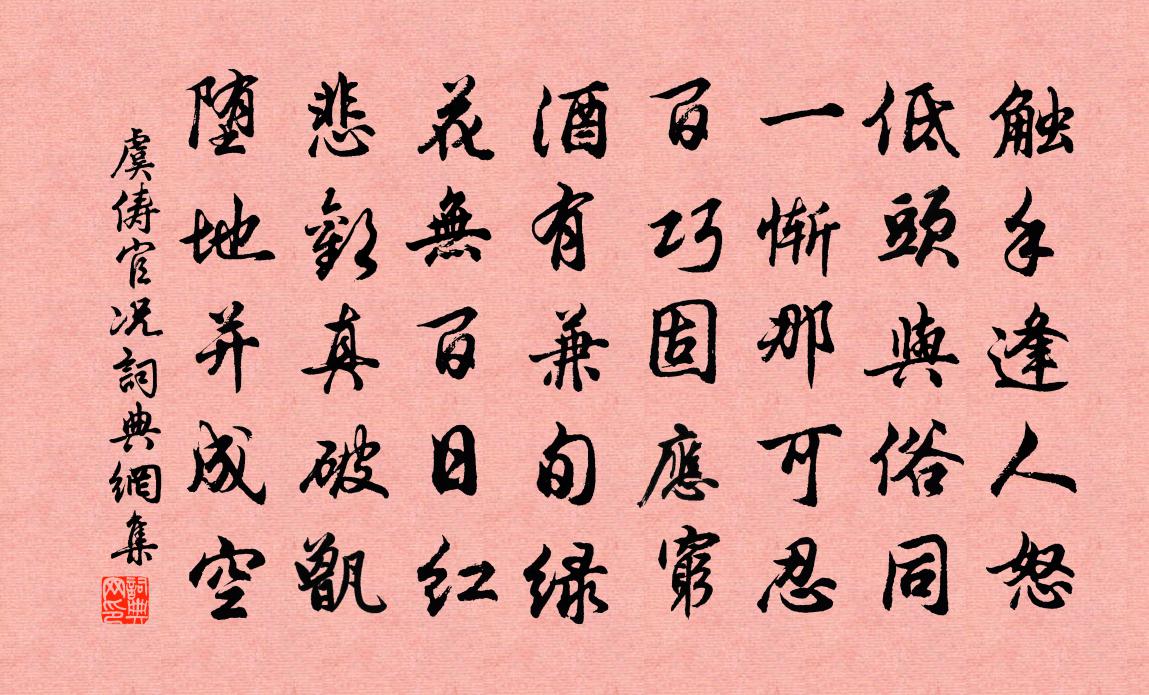 触手逢人怒
低頭與俗同
一慚那可忍
百巧固應窮
酒有兼旬緑
花無百日紅
悲歡真破甑
堕地并成空
虞儔官况詞典網集
詞典網印